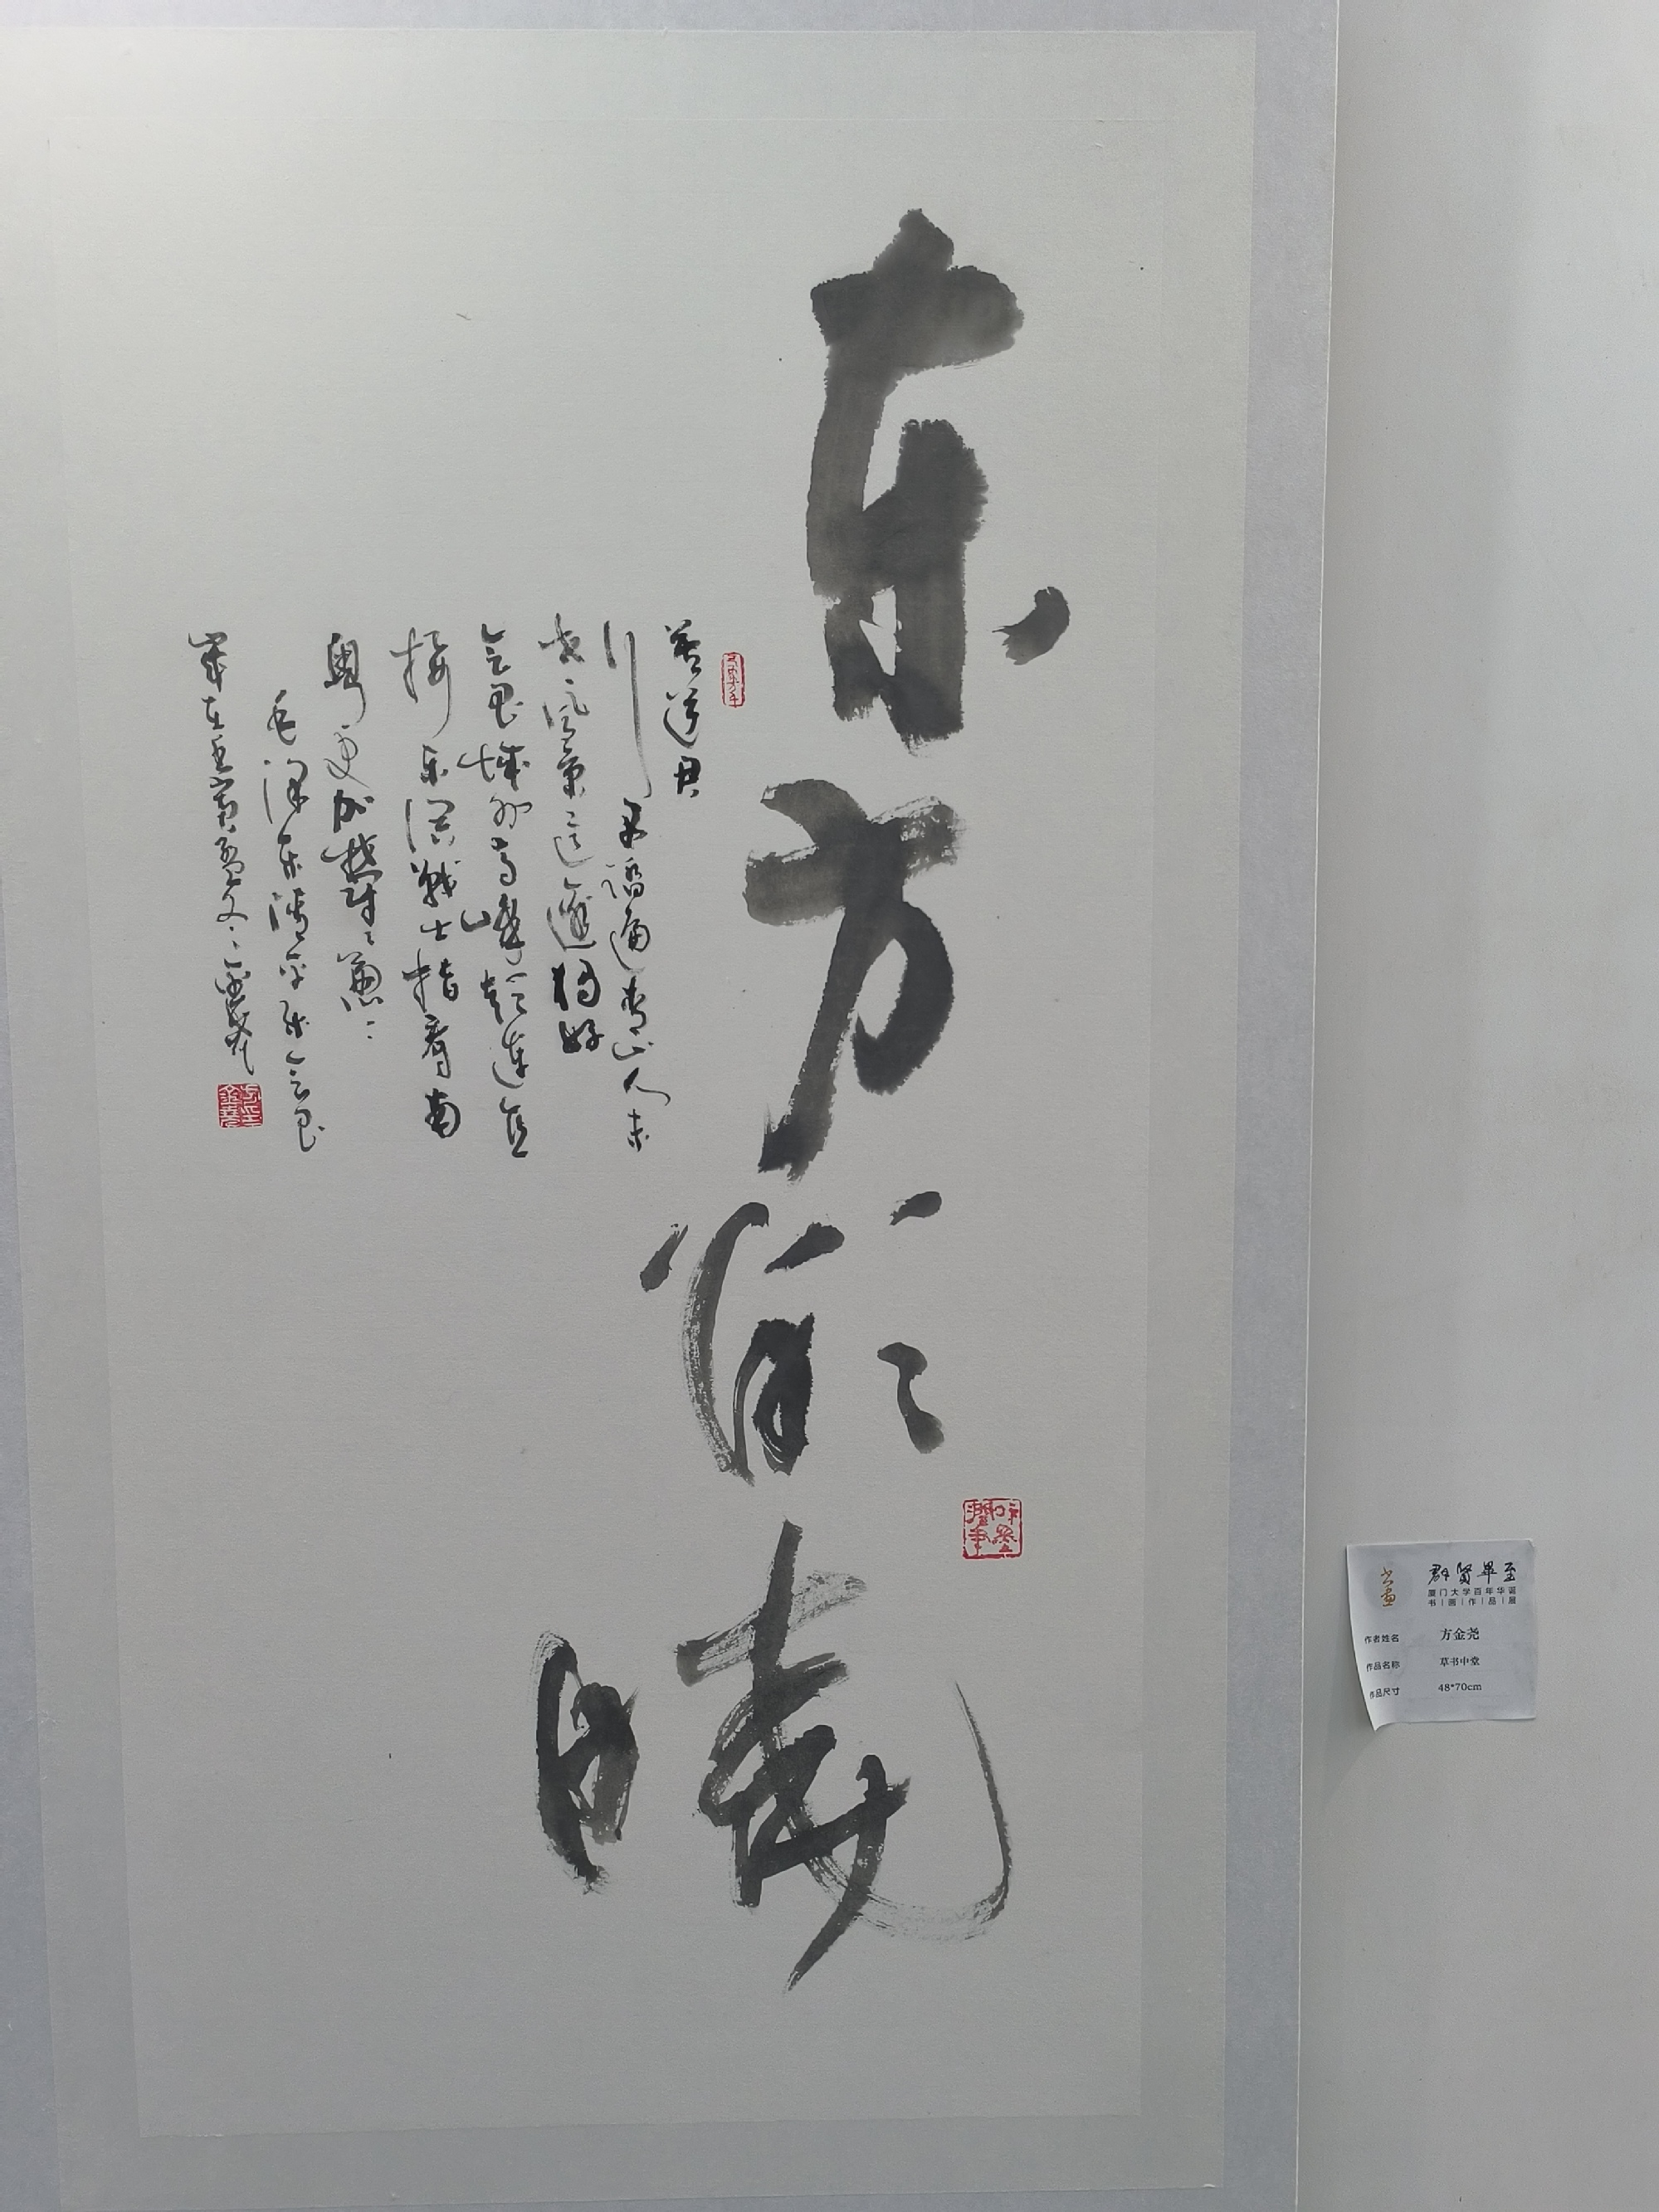 东方欲晓
莫道君
行早踏遍青山人未
老风景这边独好
会昌城外高峰颠连直
接东溟战士指看南
粤更加郁々葱々
毛泽东清平乐会昌
岁在
群贤毕至
厦门大学百年华诞
书|画|作|品|展
作者姓名 方金尧
作品名称 草书中堂
作品尺寸 48*70cm